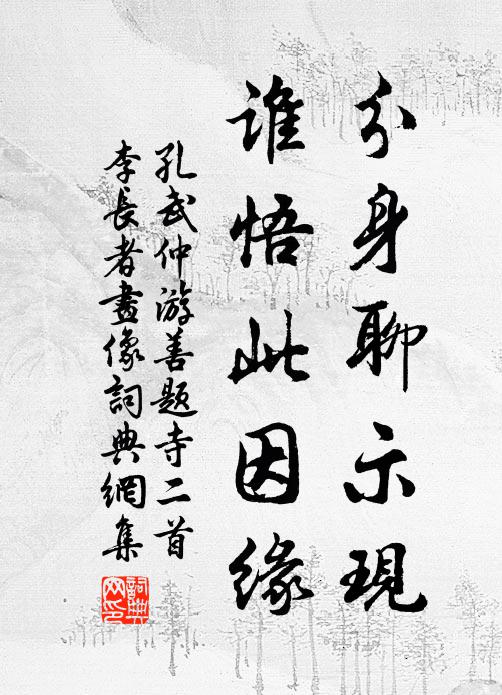 分身聊示現
誰悟此因緣
孔武仲游善題寺二首
李長者畫像詞典網集